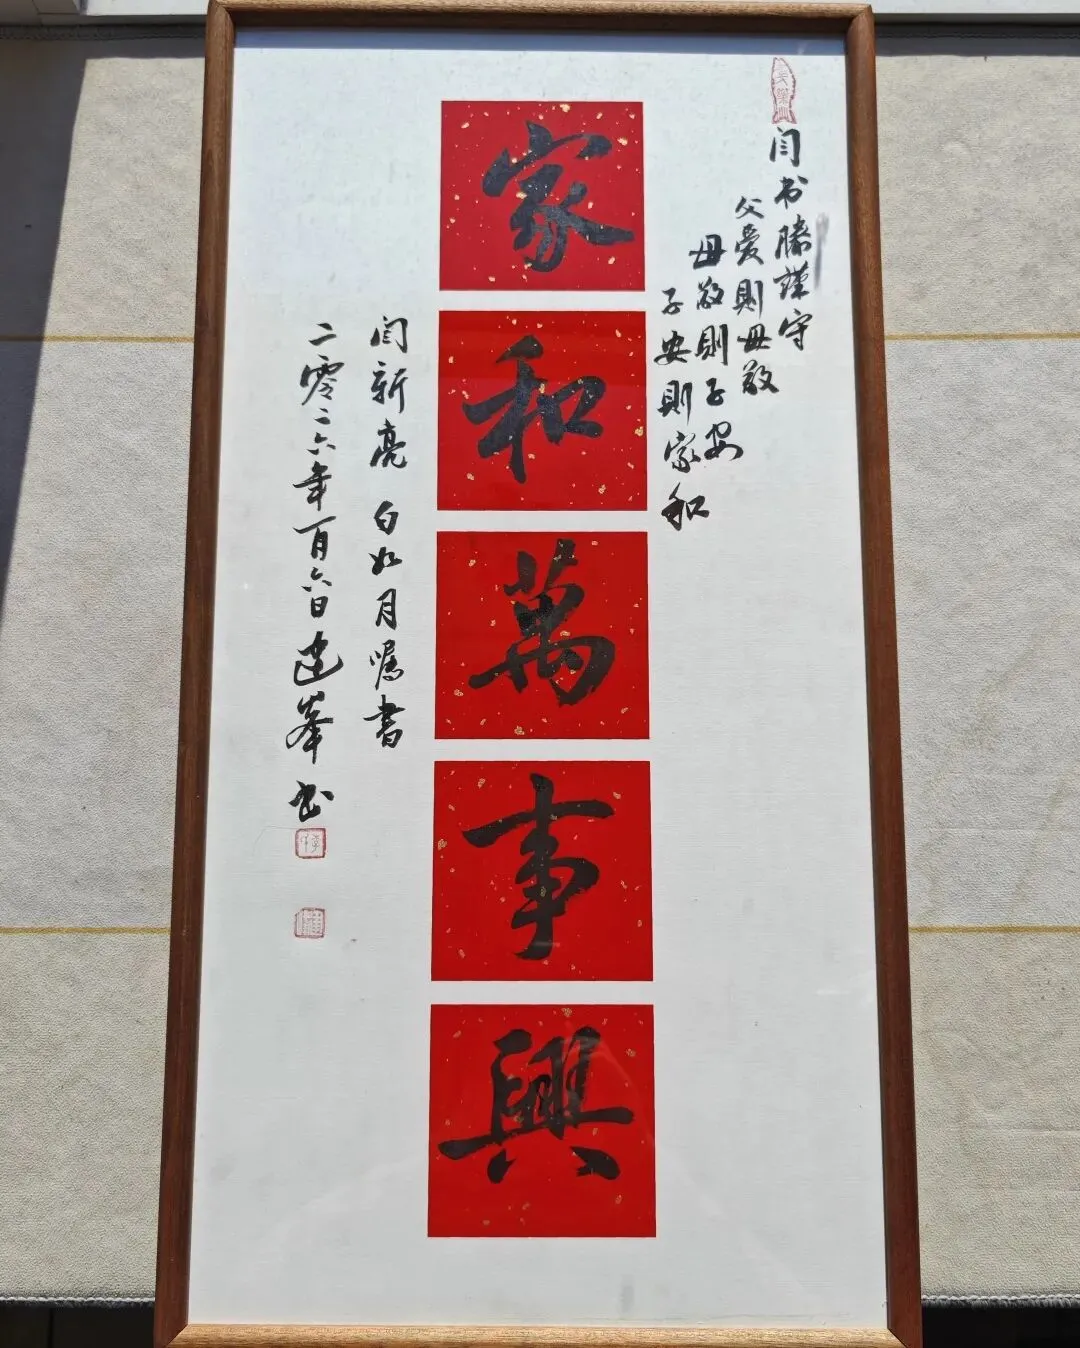 闫书滕谨守
父爱則母敬
母敬則子安
子安則家和
家和萬事興
闫新亮 白如月嘱書
二零二六年一月六日建峯书